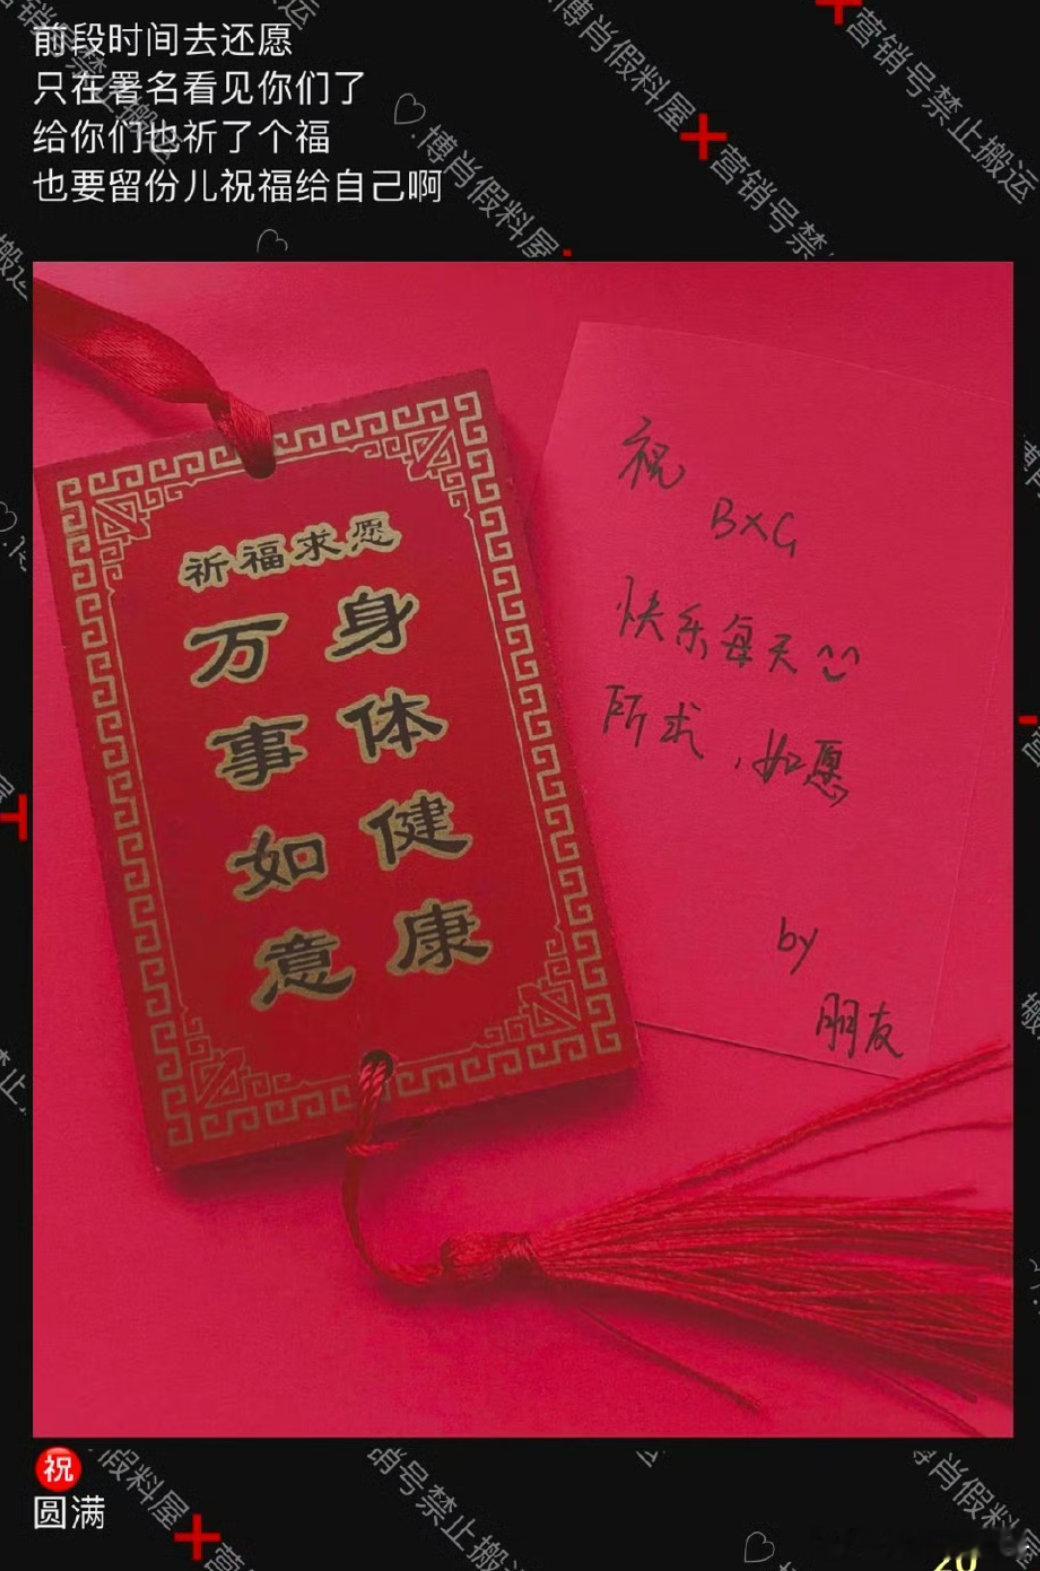 前段时间去还愿
只在署名看见你们了
给你们也祈了个福
也要留份儿祝福给自己啊
祈福求愿
身体健康
万事如意
祝
BXG
快乐每天
所求，如愿
by
朋友
祝
圆满
博肖假料屋
营销号禁止搬运